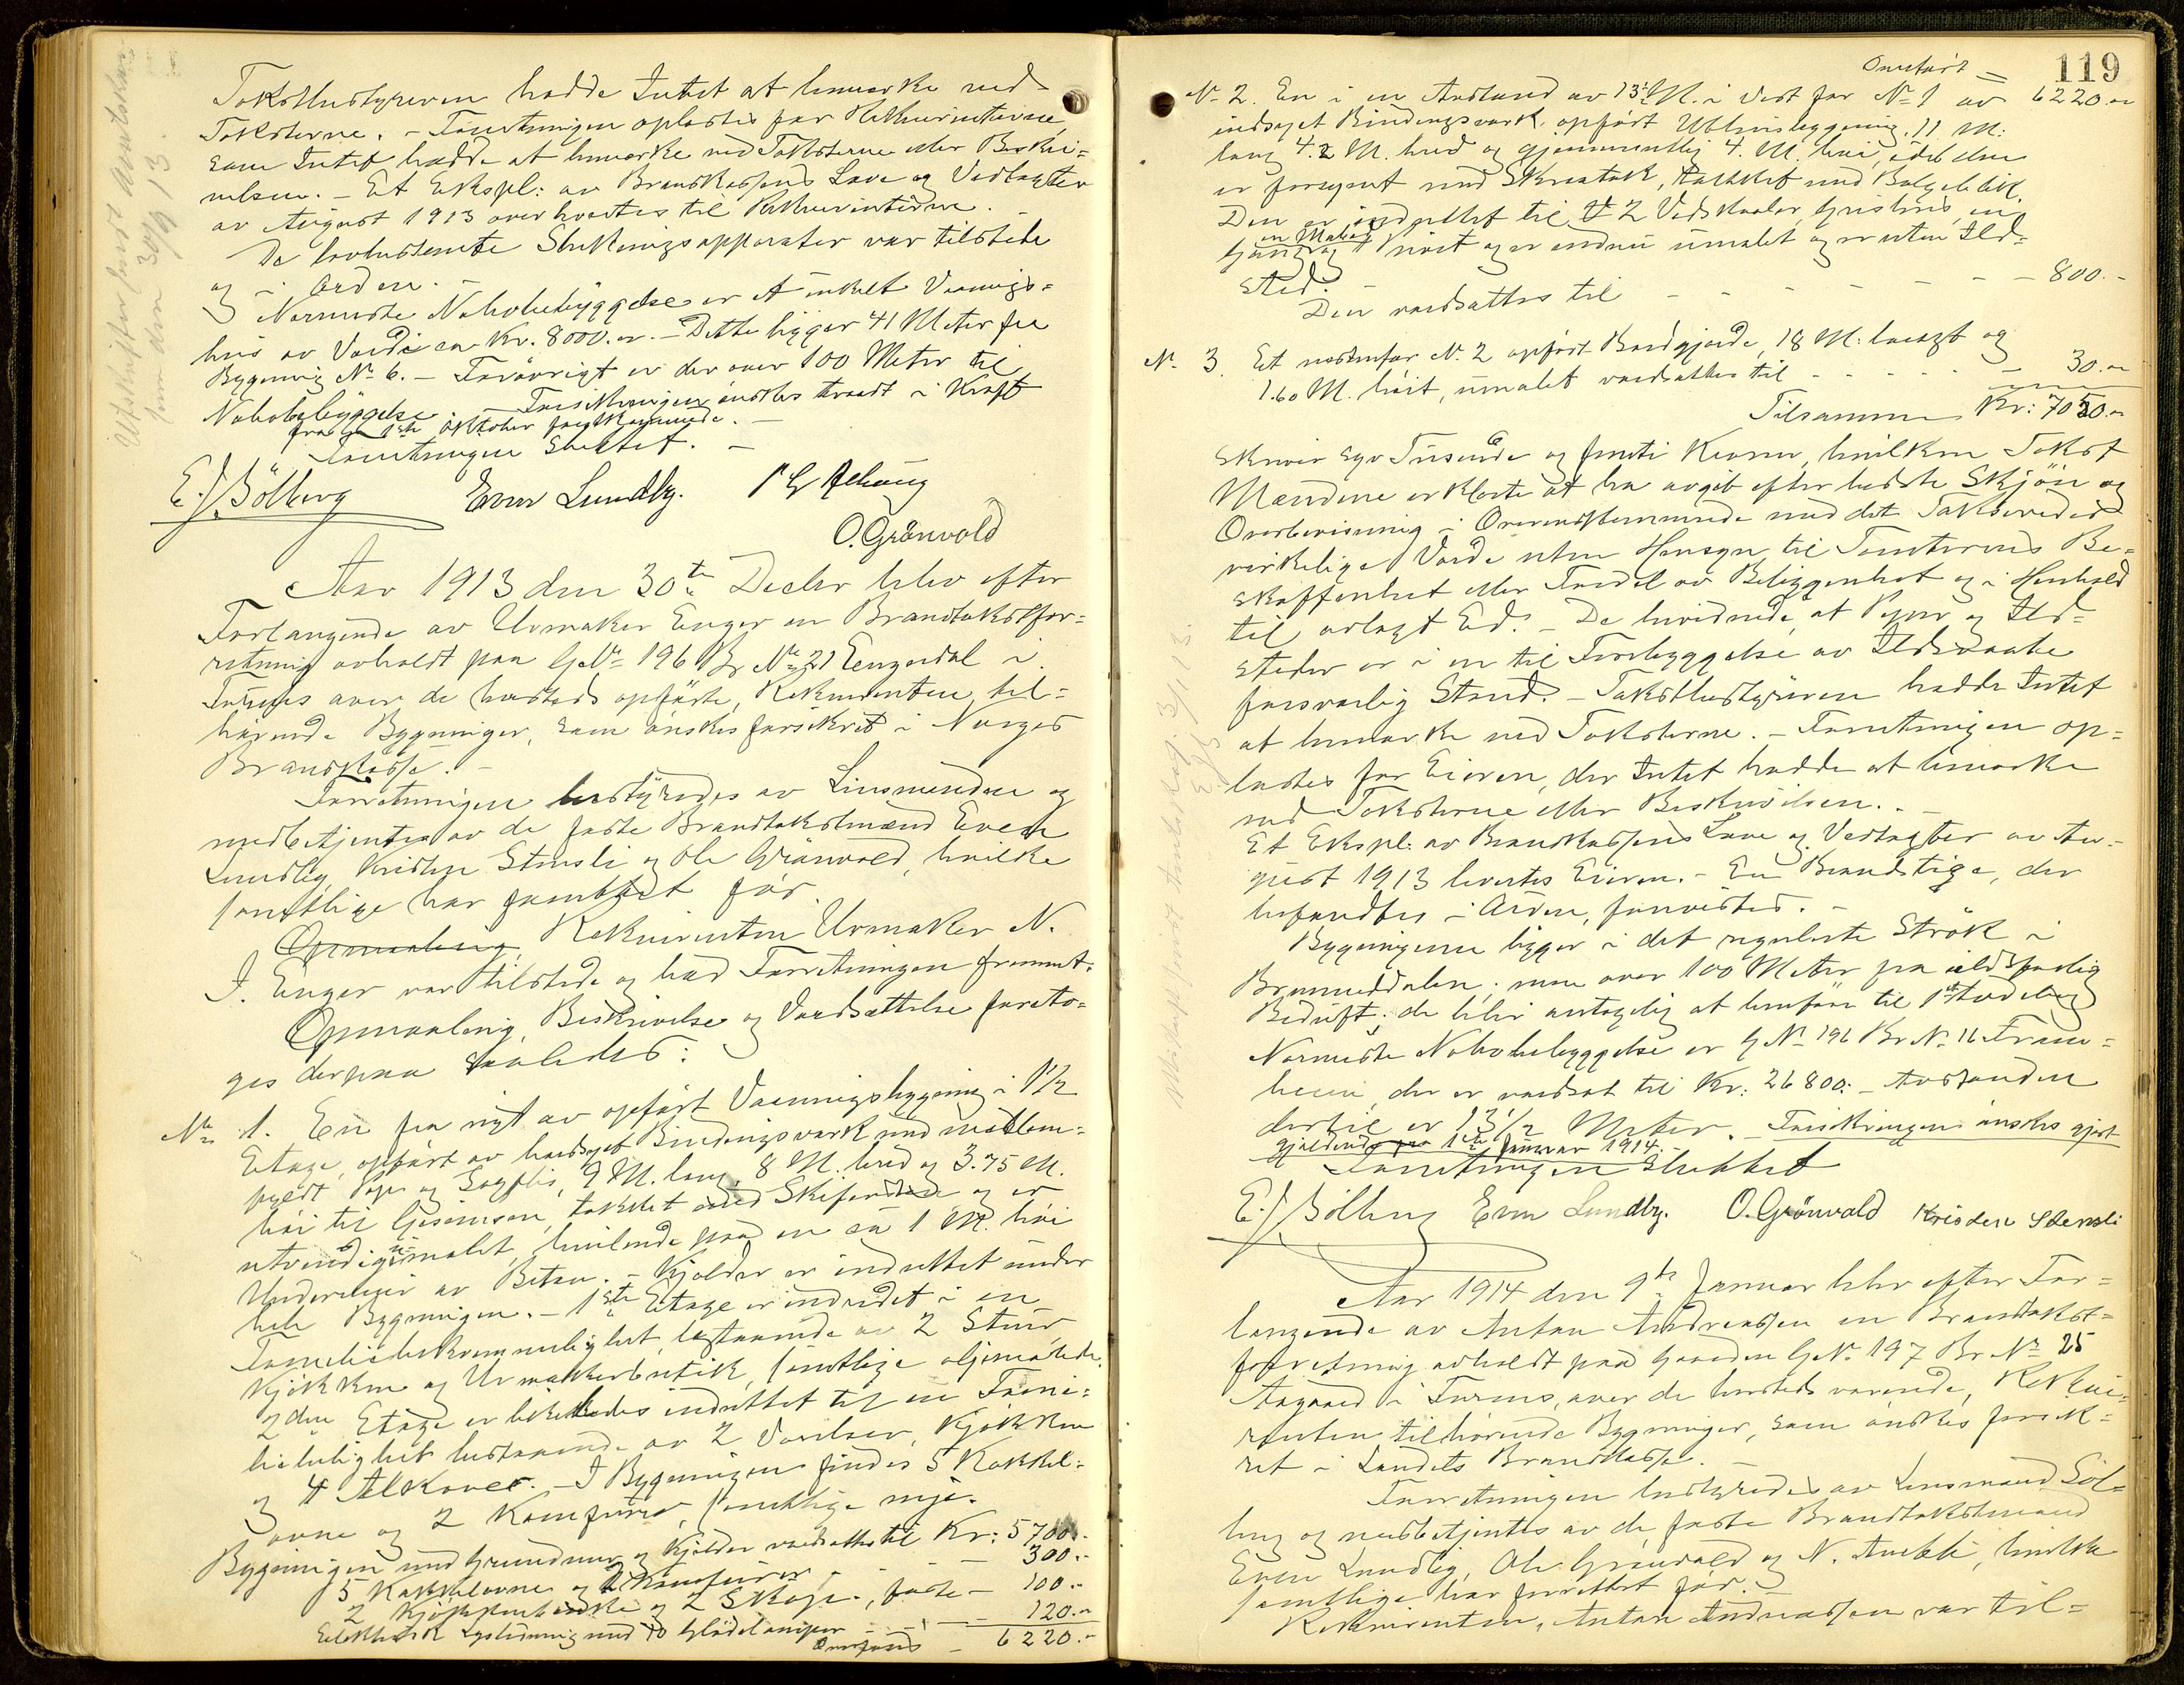 Takstbestyreren hadde Intet at bemærke ved
Taksterne. – Forretningen oplæstes for Rekvirenterne
som Intet hadde at bemærke ved Taksterne eller Beskri=
velsen. – Et Ekspl: av Brandkassens Love og Vedtægter
av August 1913 overleveredes til Rekvirenterne. –
De lovbestemte Slukningsapparater var tilstede
og i Orden. –
Nærmeste Nabobebyggelse er et enkelt Vaanings=
hus av Værdi ca Kr. 8000.00. – Dette ligger 41 Meter fra
Bygning No 6. – Forøvrigt er der over 100 Meter til
Nabobebyggelse. – Forsikringen ønskes traadt i Kraft
fra 1ste Oktober førstkommende. –
Forretningen sluttet. –
E. J. Sölberg Even Lundby.
O. Grönvold
Aar 1913 den 30te Decbr blev efter
Forlangende av Urmaker Enger en Brandtakstfor=
retning avholdt paa G.No 196 Br No 21 Engerdal i
Furnes over de hersteds opførte, Rekvirenten til=
hørende Bygninger, som ønskes forsikret i Norges
Brandkasse. –
Forretningen bestyredes av Lensmanden og
medbetjentes av de faste Brandtakstmænd Even
Lundby, Kristen Stensli og Ole Grönvold, hvilke
samtlige har forrettet før.
Opmaaling Rekvirenten Urmaker N.
J. Enger var tilstede og bad Forretningen fremmet.
Opmaaling, Beskrivelse og Værdsættelse foreto=
ges derpaa saaledes:
No 1. En fra nyt av opført Vaaningsbygning i 1 1/2
Etage, opført av haandsaget Bindingsværk med mellem=
fyldt Pap og Sagflis, 9 M. lang, 8 M. bred og 3.75 M.
høi til Gesimsen, tækket med Skifersten og er
utvendig umalet, hvilende paa en ca 1 M. høi
Undermur av Beton. – Kjælder er indrettet under
hele Bygningen. – 1ste Etage er indredet i en
Familiebekvemmelighet, bestaaende av 2 Stuer
Kjøkken og Urmakerbutik, samtlige oljemalede.
2den Etage er likeledes indrettet til en Fami=
lieleilighet bestaaende av 2 Værelser, Kjøkken
og 4 Alkover. – I Bygningen findes 5 Kakkel=
ovne og 2 Komfurer, samtlige nye.
Bygningen med Grundmur og Kjælder værdsattes til Kr: 5700.-
5 Kakkelovne og 2 Komfurer - 300.-
2 Kjøkkenbænke og 2 Skape, faste - 100.-
Elektrisk Lysledning med 10 Glødelamper - 120.-
Overføres - 6220.-
Utskrift sendt Amtskas.
119
Overført =
No 2. En i en Avstand av 13 1/2 M. i Vest for No 1 av 6220.00
indsaget Bindingsværk opført Uthusbygning, 11 M.
lang 4.2 M. bred og gjennemsnitlig 4. M. høi, idet den
er forsynet med Skraatak, tækket med Bølgeblik.
Den er indrettet til 2 Vedskaaler, Grishus, en
Gang og
en
nøst og er endnu umalet og er uten Ild=
sted.
Den værdsattes til - - - - - - 800.-
No 3. Et nordenfor No 2 opført Bordgjærde, 18 M. langt og
1.60 M. høit, umalet værdsattes til - - - - - 30.00
Tilsammen Kr: 7050.00
skriver syv Tusinde og femti Kroner, hvilken Takst
Mændene erklærte at ha avgit efter bedste Skjøn og
Overbevisning i Overensstemmende med det Takseredes
virkelige Værdi uten Hensyn til Tomternes Be=
skaffenhet eller Fordel av Beliggenhet og i Henhold
til avlagt Ed. – De bevidnede, at Piper og Ild=
steder er i en til Forebyggelse av Ildsvaade
forsvarlig Stand. – Takstbestyreren hadde Intet
at bemærke ved Taksterne. – Forretningen op=
læstes for Eieren, der Intet hadde at bemærke
ved Taksterne eller Beskrivelsen. –
Et Ekspl. av Brandkassens Love og Vedtægter av Au=
gust 1913 levertes Eieren. – En Brandstige, der
befandtes i Orden, forevistes. –
Bygningerne ligger i det regulerte Strøk i
Brumunddalen, men over 100 Meter fra ildsfarlig
Bedrift; de blir antagelig at henføre til 1ste Avdeling
Nærmeste Nabobebyggelse er G No 196 Br No 16 Frem=
heim, der er værdsat til Kr: 26800. – Avstanden
dertil er 13 1/2 Meter. – Forsikringen ønskes gjort
gjældende fra 1ste Januar 1914. –
Forretningen sluttet
E. J. Sölberg Even Lundby. O. Grönvold Kristen Stensli
Aar 1914 den 9de Januar blev efter For=
langende av Anton Andreassen en Brandtakst=
forretning avholdt paa Gaarden G No 197 Br No 25
Aagaard i Furnes, over de hersteds værende, Rekvi=
renten tilhørende Bygninger, som ønskes forsik=
ret i Landets Brandkasse. –
Forretningen bestyredes av Lensmand Söl=
berg og medbetjentes av de faste Brandtakstmænd
Even Lundby, Ole Grönvold og N. Aurlli, hvilke
samtlige har forrettet før. –
Rekvirenten, Anton Andreassen var til=